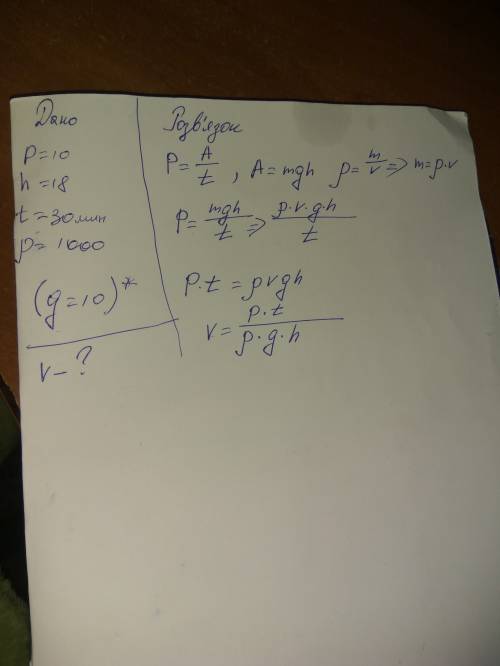 Дано
p=10
h=18
t=30мин
ρ=1000
(g=10)*
v-?
Розв'язок
P=A/t, A=mgh ρ=m/v=>m=ρ·v
P=mgh/t=>ρ·v·g·h/t
P·t=ρvgh
v=P·t/ρ·g·h